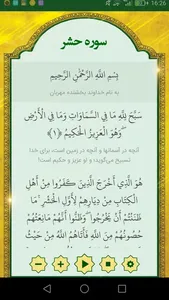 16:26
سوره حشر
بِسْمِ اللَّهِ الرَّحْمَٰنِ الرَّحِيمِ
به نام خداوند بخشنده مهربان
سَبَّحَ لِلَّهِ مَا فِي السَّمَاوَاتِ وَمَا فِي الْأَرْضِ
وَهُوَ الْعَزِيزُ الْحَكِيمُ ﴿١﴾
آنچه در آسمانها و آنچه در زمین است، برای خدا
تسبیح می‌گویند؛ و او عزیز و حکیم است!
هُوَ الَّذِي أَخْرَجَ الَّذِينَ كَفَرُوا مِنْ أَهْلِ
الْكِتَابِ مِنْ دِيَارِهِمْ لِأَوَّلِ الْحَشْرِ مَا
ظَنَنْتُمْ أَنْ يَخْرُجُوا وَظَنُّوا أَنَّهُمْ مَانِعَتُهُمْ
حُصُونُهُمْ مِنَ اللَّهِ فَأَتَاهُمُ اللَّهُ مِنْ حَيْثُ